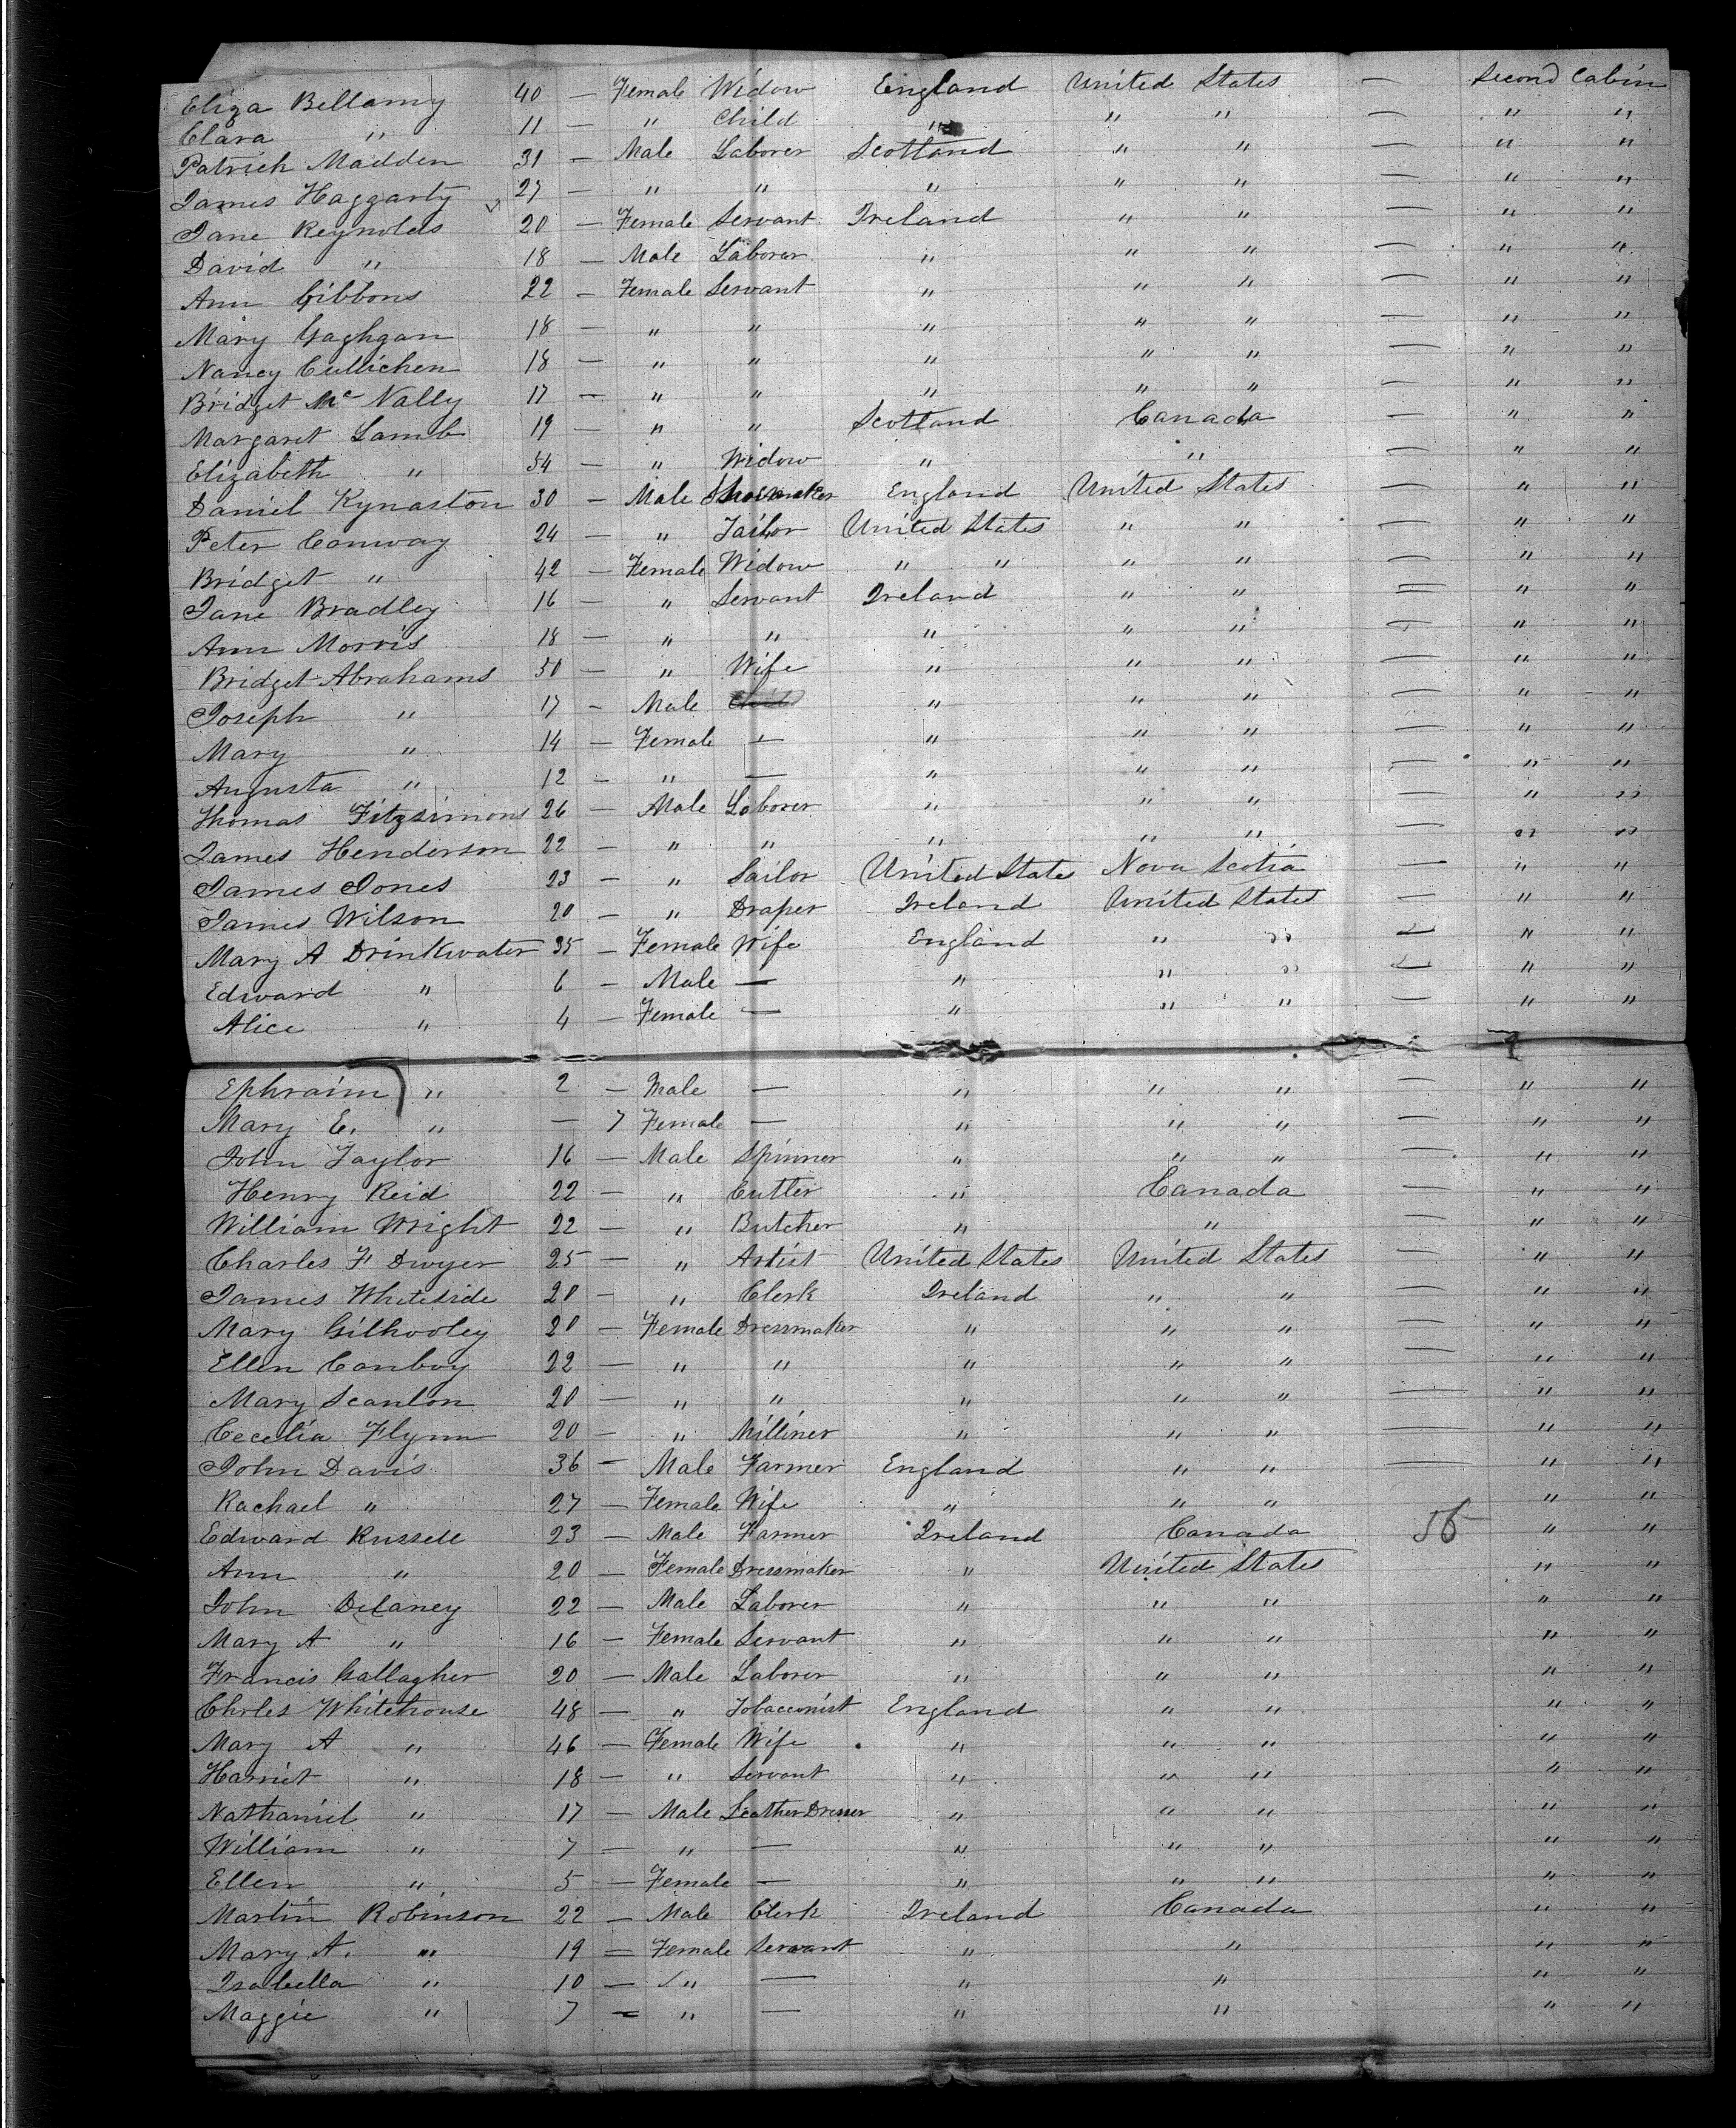 Eliza Bellamy 40 — Female Widow England United States — Second Cabin
Clara " 11 — " Child " " " — " "
Patrick Madden 31 — Male Laborer Scotland " " — " "
James Haggarty 27 — " " " " " — " "
Jane Reynolds 20 — Female Servant Ireland " " — " "
David " 18 — Male Laborer " " " — " "
Ann Gibbons 22 — Female Servant " " " — " "
Mary Gaghgan 18 — " " " " " — " "
Nancy Cullichen 18 — " " " " " — " "
Bridget Mc Nally 17 — " " " " " — " "
Margaret Lamb 19 — " " Scotland Canada — " "
Elizabeth " 54 — " Widow " " — " "
Daniel Kynaston 30 — Male Shoemaker England United States — " "
Peter Conway 24 — " Tailor United States " " — " "
Bridget " 42 — Female Widow " " " " — " "
Jane Bradley 16 — " Servant Ireland " " — " "
Ann Morris 18 — " " " " " — " "
Bridget Abrahams 50 — " Wife " " " — " "
Joseph " 17 — Male " " " — " "
Mary " 14 — Female — " " " — " "
Augusta " 12 — " — " " " — " "
Thomas Fitzsimons 26 — Male Laborer " " " — " "
James Henderson 22 — " " " " " — " "
James Jones 23 — " Sailor United States Nova Scotia — " "
James Wilson 20 — " Draper Ireland United States — " "
Mary A Drinkwater 35 — Female Wife England " " — " "
Edward " 6 — Male — " " " — " "
Alice " 4 — Female — " " " — " "
Ephraim " 2 — Male — " " " — " "
Mary E. " — 7 Female — " " " — " "
John Taylor 16 — Male Spinner " " " — " "
Henry Reid 22 — " Cutler " Canada — " "
William Wright 22 — " Butcher " " — " "
Charles F Dwyer 25 — " Artist United States United States — " "
James Whiteside 20 — " Clerk Ireland " " — " "
Mary Gilhooley 20 — Female Dressmaker " " " — " "
Ellen Conboy 22 — " " " " " — " "
Mary Scanlon 20 — " " " " " — " "
Cecelia Flynn 20 — " Milliner " " " — " "
John Davis 36 — Male Farmer England " " — " "
Rachael " 27 — Female Wife " " " " "
Edward Russell 23 — Male Farmer Ireland Canada " "
Ann " 20 — Female Dressmaker " United States " "
John Delaney 22 — Male Laborer " " " " "
Mary A " 16 — Female Servant " " " " "
Francis Gallagher 20 — Male Laborer " " " " "
Chrles Whitehouse 48 — " Tobacconist England " " " "
Mary A " 46 — Female Wife " " " " "
Harriet " 18 — " Servant " " " " "
Nathaniel " 17 — Male Leather Dresser " " " " "
William " 7 — " — " " " " "
Ellen " 5 — Female — " " " " "
Martin Robinson 22 — Male Clerk Ireland Canada " "
Mary A. " 19 — Female Servant " " " "
Isabella " 10 — " — " " " "
Maggie " 7 — " — " " " "